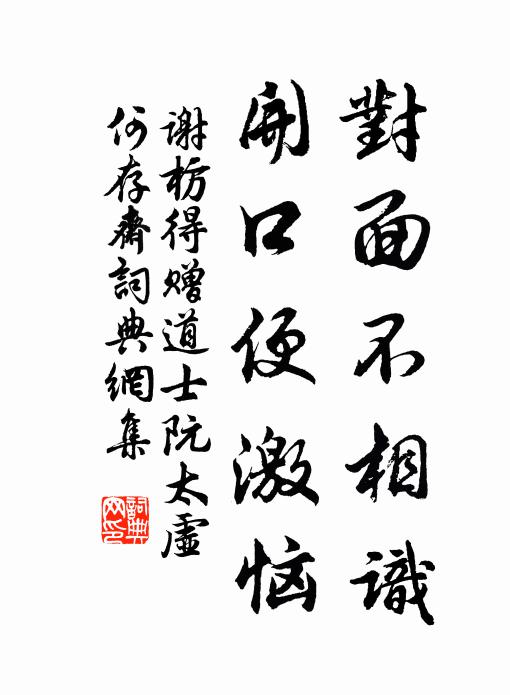 對面不相識
開口便激恼
謝枋得赠道士阮太虛
何存齋詞典網集
詞典
网印